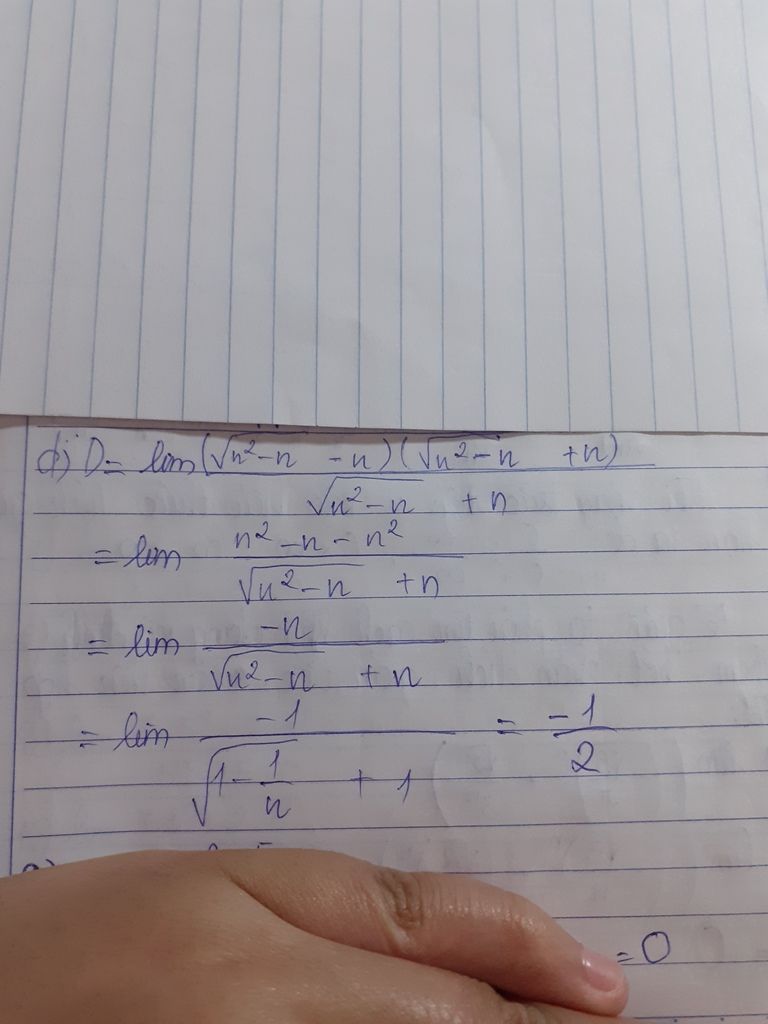 d) D = lim (√n²-n - n)(√n²-n + n)
√n²-n + n
= lim n²-n-n²
√n²-n + n
= lim -n
√n²-n + n
= lim -1 = -1
√1-1/n + 1 2
= 0